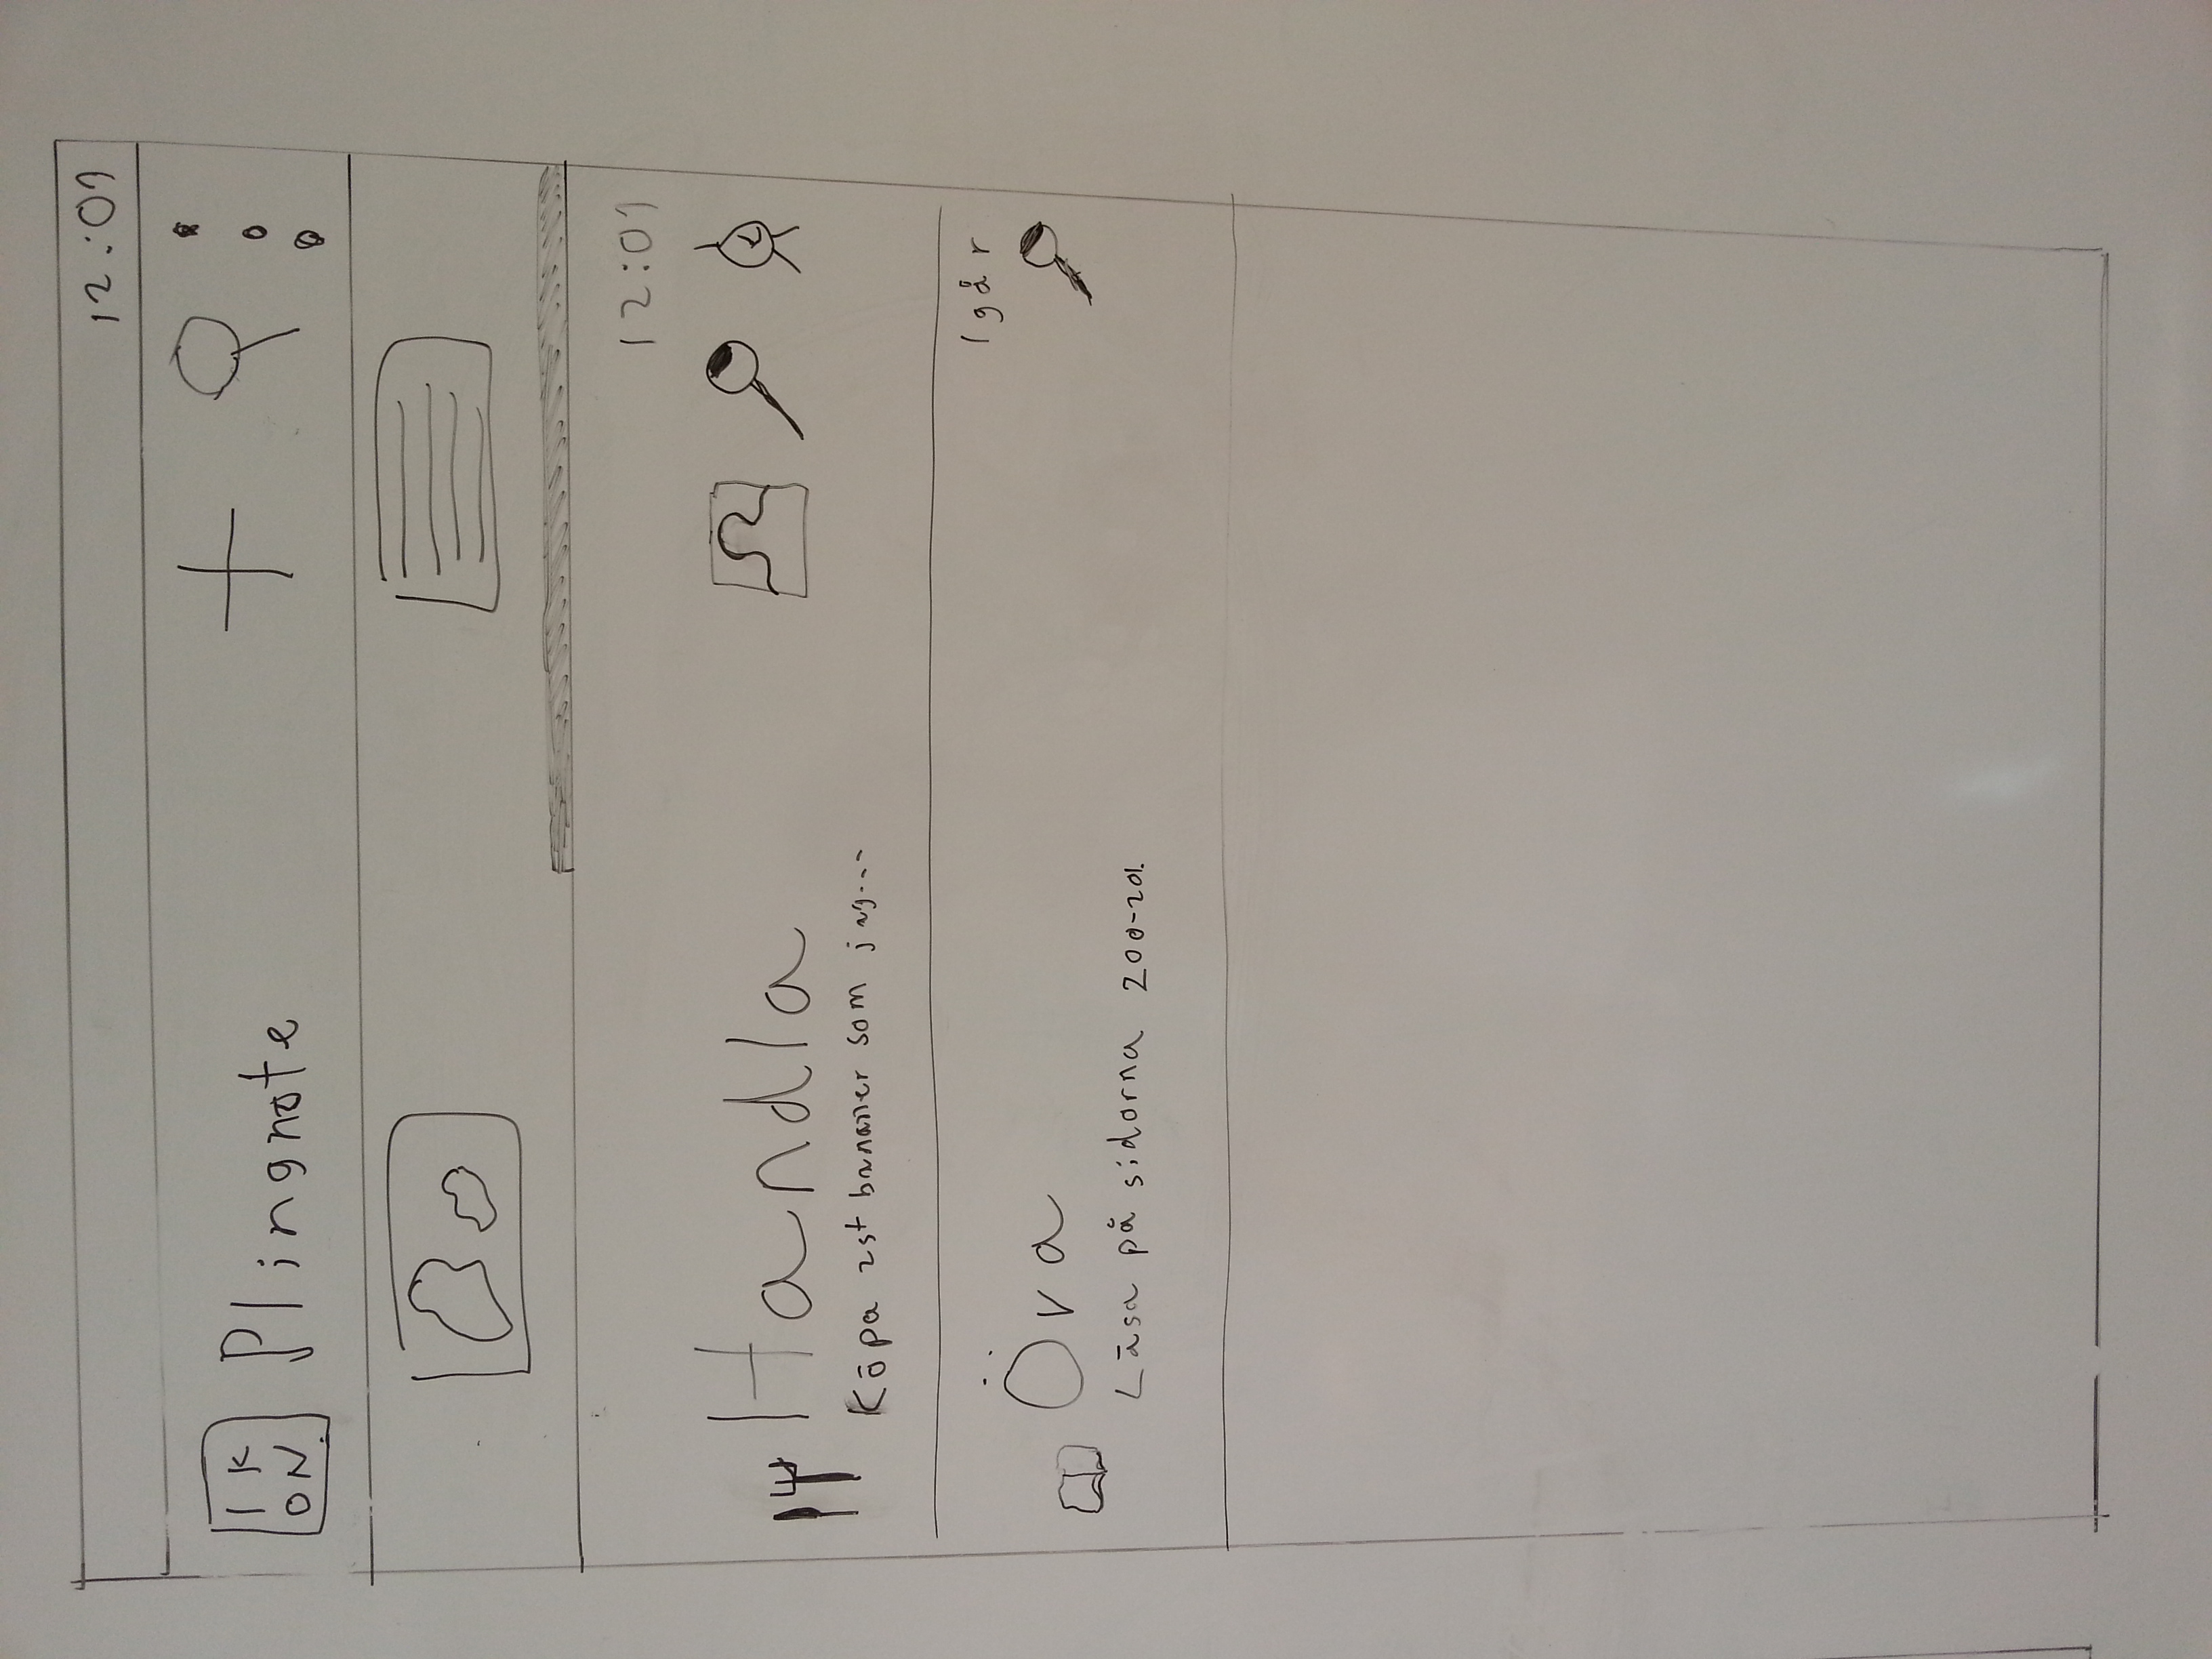 12:01
IK
ON
Plingnote
12:01
Handla
Köpa 2st bananer som jag...
Igår
Öva
Läsa på sidorna 200-201.